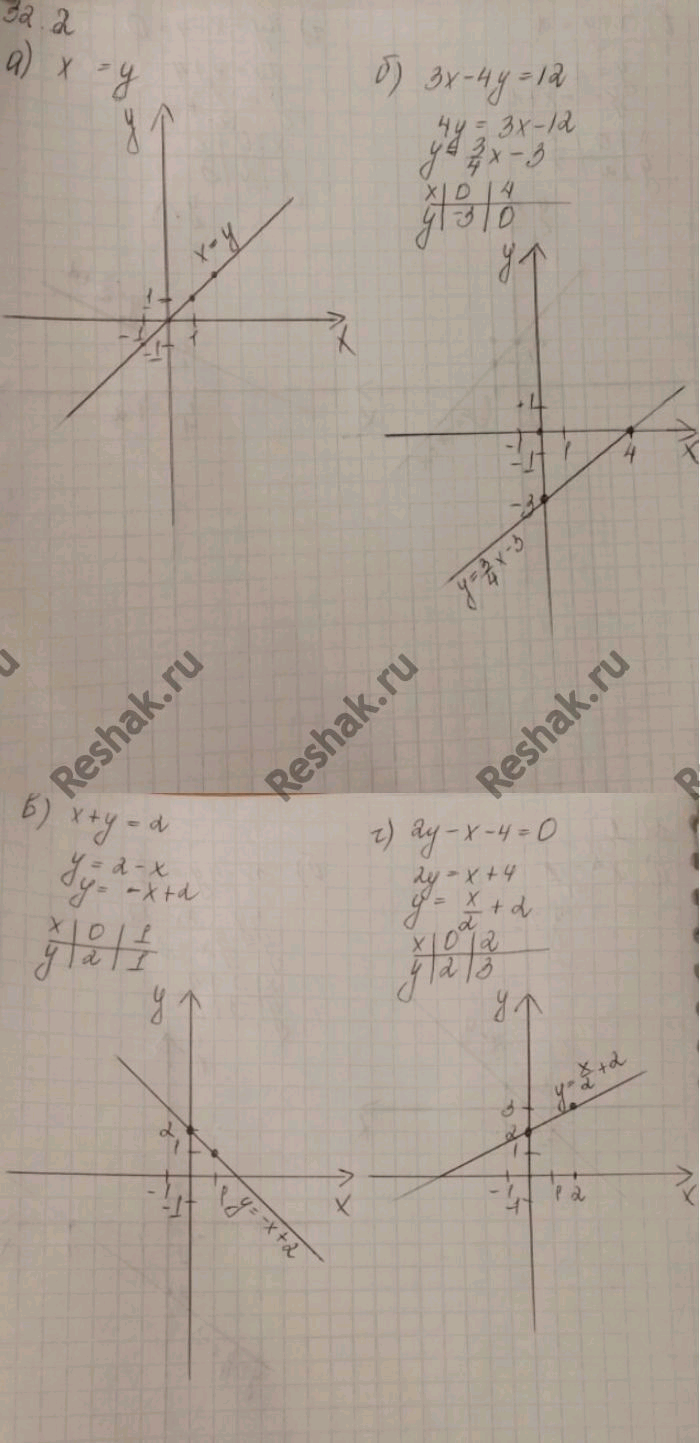 32.2
а) x = y
y
x = y
1
-1 1
-1
x
б) 3x-4y=12
4y = 3x-12
y = 3/4 x - 3
x | 0 | 4
y | -3 | 0
y
+1
-1 1 4
-1
x
-3
y = 3/4 x - 3
Reshak.ru
Reshak.ru
Reshak.ru
Б) x+y=2
y = 2-x
y = -x+2
x | 0 | 1
y | 2 | 1
y
2
1
-1 1
-1
x
y=-x+2
г) 2y-x-4=0
2y=x+4
y = x/2 + 2
x | 0 | 2
y | 2 | 3
y
y = x/2 + 2
3
2
1
-1 1 2
-1
x